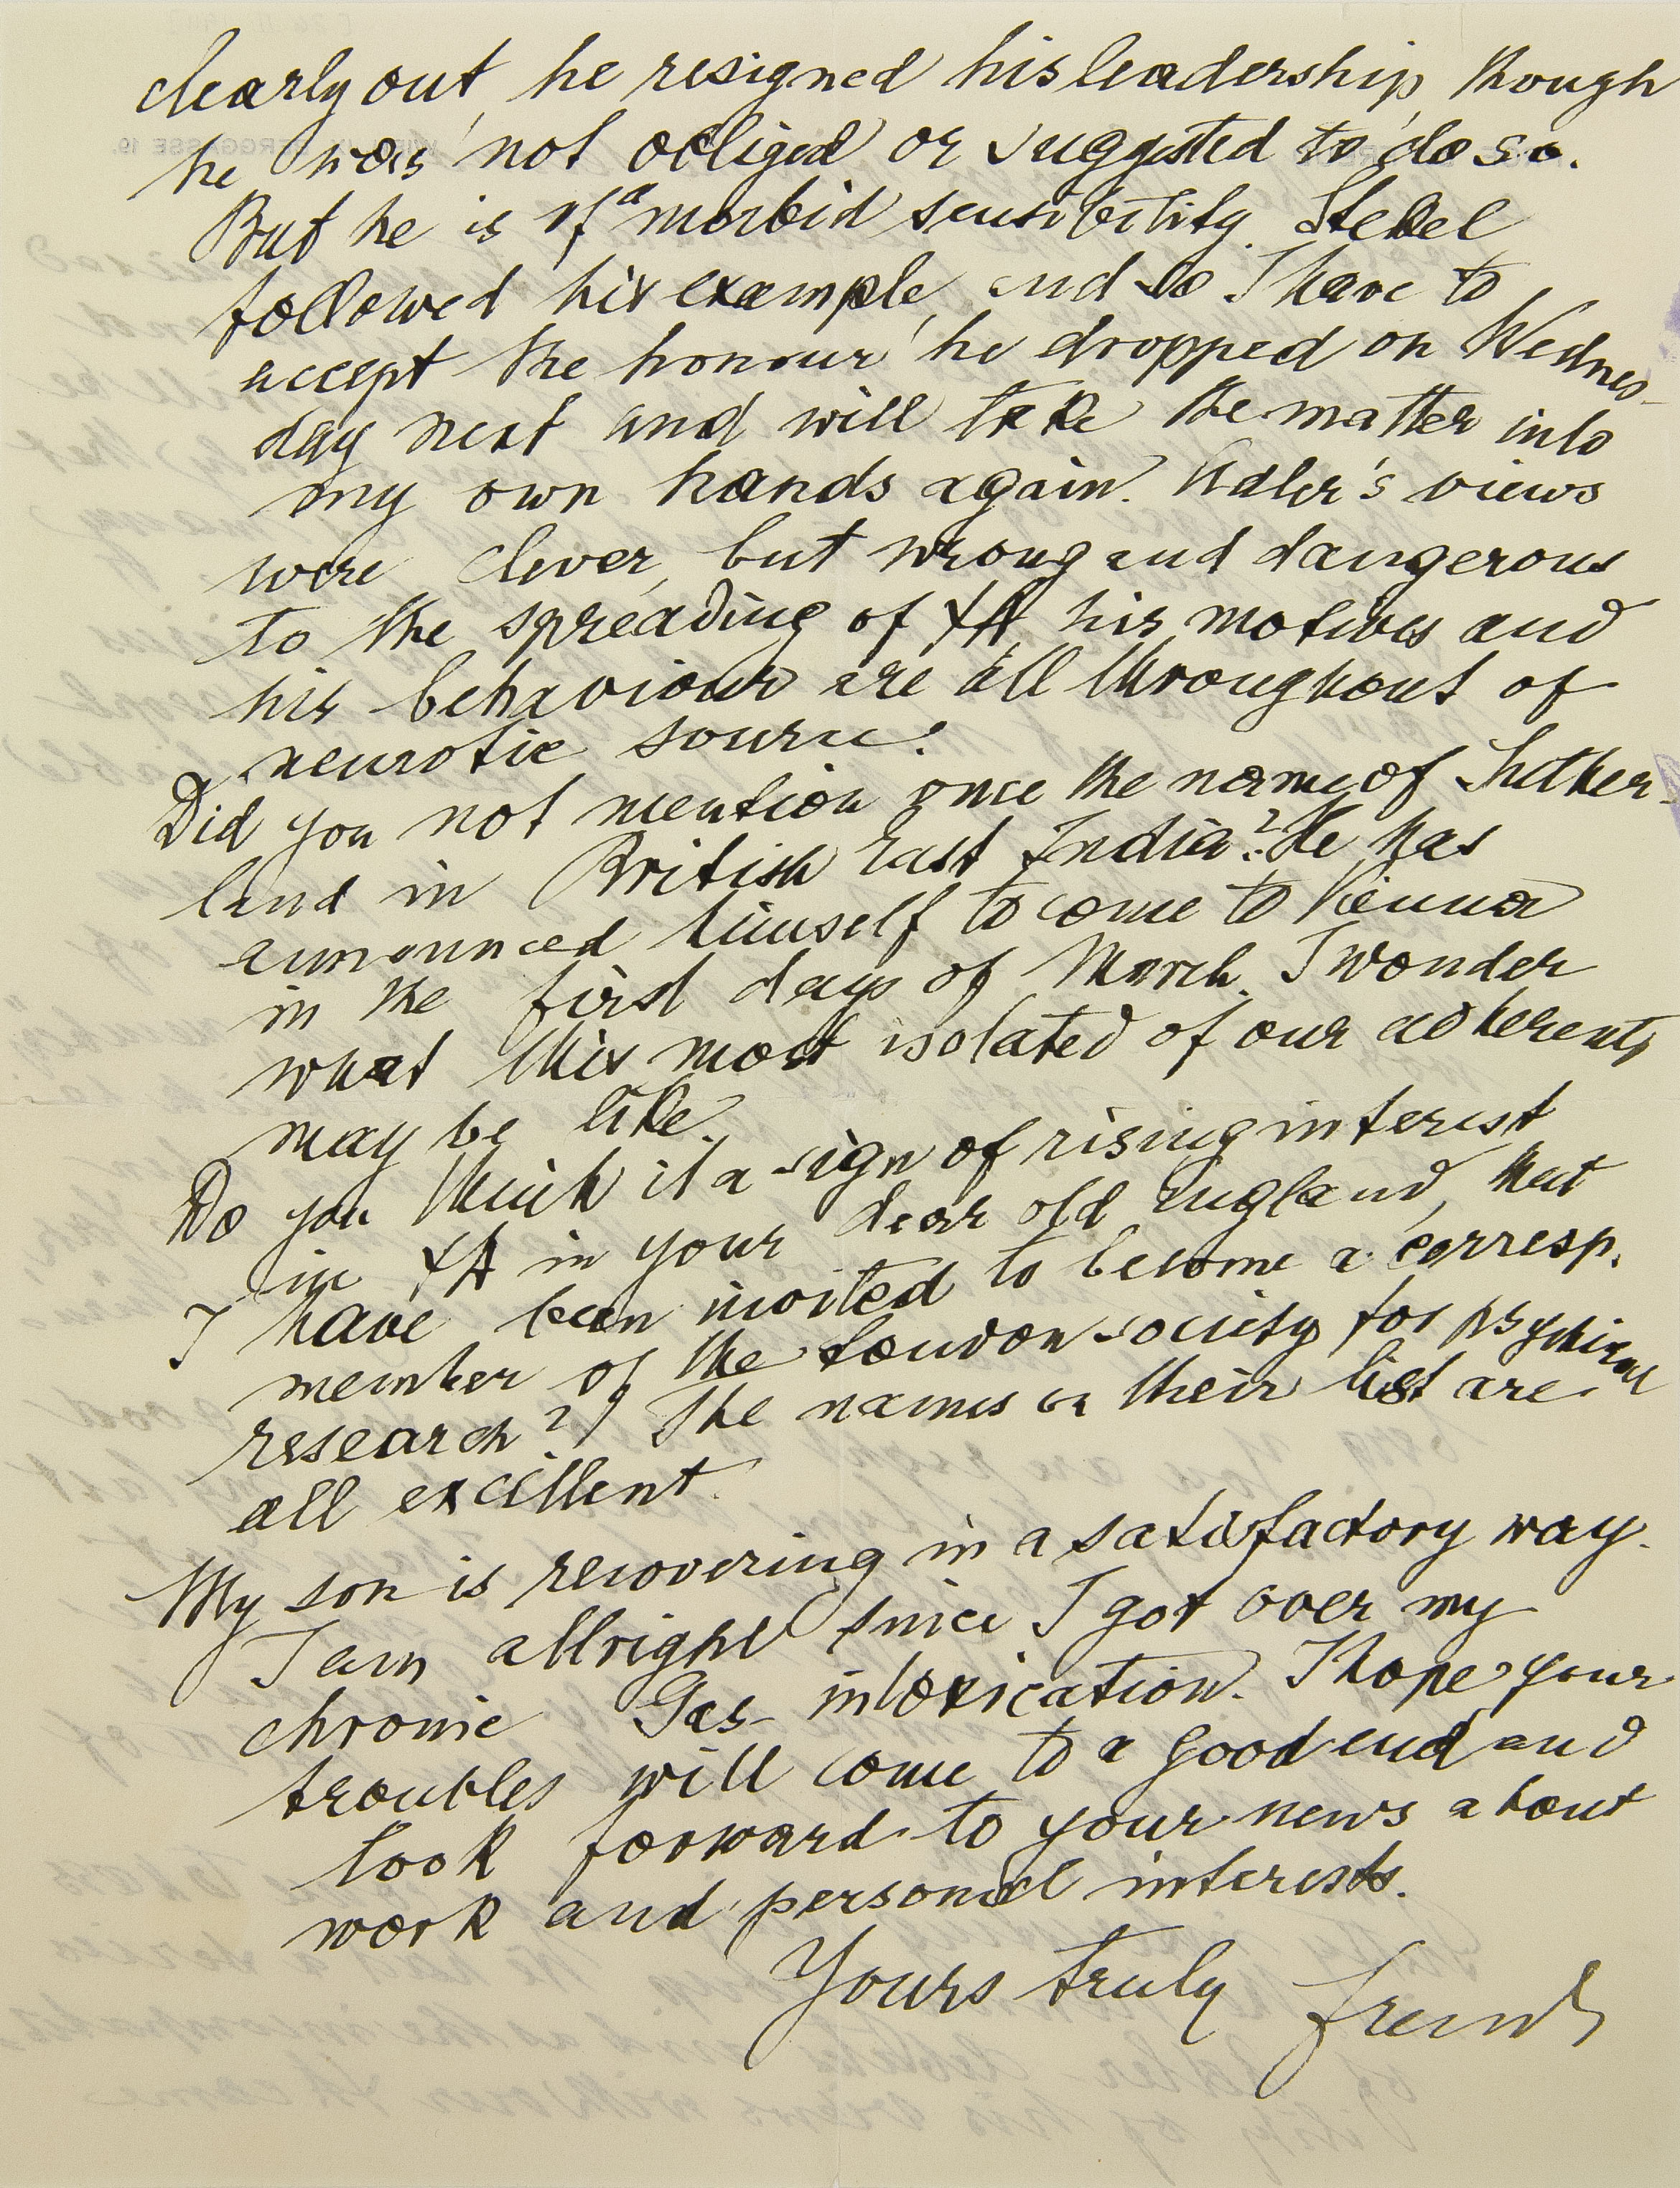 clearly out, he resigned his leadership, though
he was not obliged or suggested to do so.
But he is of a morbid sensibility. Stekel
followed his example, and so I have to
accept the honour he dropped on Wednes-
day next and will take the matter into
my own hands again. Adler's views
were clever, but wrong and dangerous
to the spreading of ΨA, his motives and
his behaviour are all throughout of
neurotic source.
Did you not mention once the name of Suther-
land in British East India? He has
announced himself to come to Vienna
in the first days of March. I wonder
what this most isolated of our adherents
may be like.
Do you think it a sign of rising interest
in ΨA in your dear old England, that
I have been invited to become a corresp.
member of the London society for psychical
research? The names on their list are
all excellent.
My son is recovering in a satisfactory way.
I am allright since I got over my
chronic Gas-intoxication. I hope your
troubles will come to a good end and
look forward to your news about
work and personal interests.
Yours truly Freud